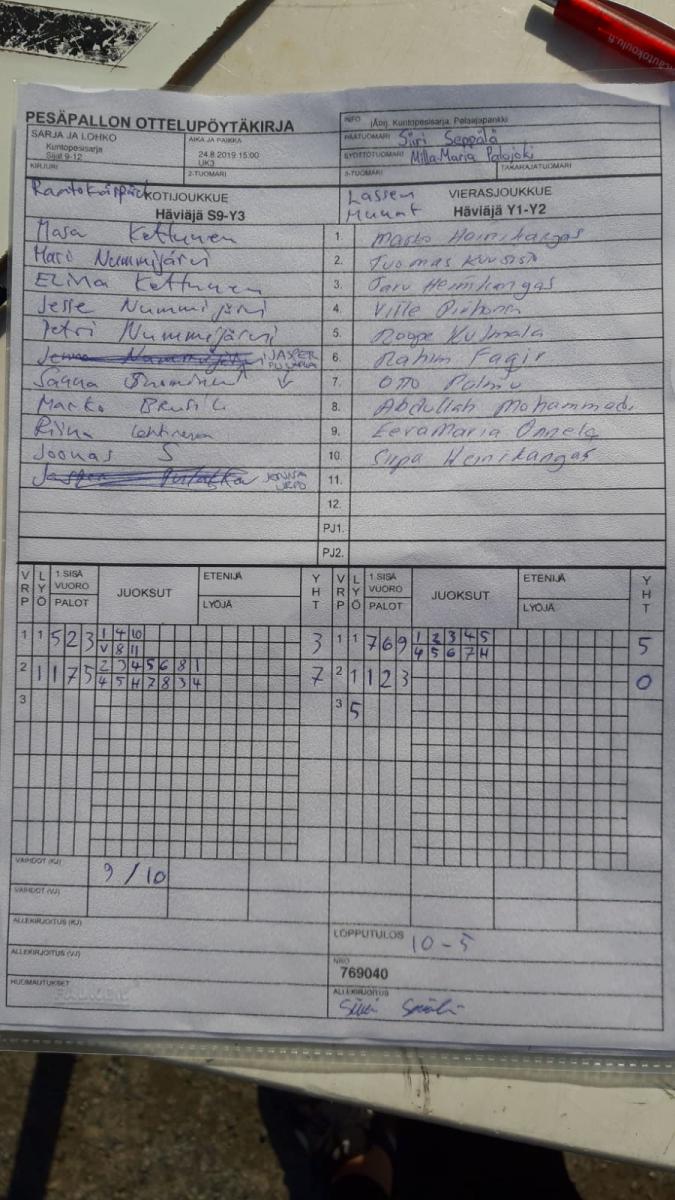 autokoulu.fi
PESÄPALLON OTTELUPÖYTÄKIRJA
INFO (Äörj. Kuntopesisarja, Pelaajapankki
SARJA JA LOHKO
Kuntopesisarja
Sijat 9-12
AIKA JA PAIKKA
24.8.2019 15:00
UK3
PÄÄTUOMARI Siiri Seppälä
SYÖTTÖTUOMARI Milla-Maria Palojoki
KIRJURI
2-TUOMARI
3-TUOMARI
TAKARAJATUOMARI
KOTIJOUKKUE
Häviäjä S9-Y3
Lassen
Munat
VIERASJOUKKUE
Häviäjä Y1-Y2
Masa Kettunen 1. Marko Heinikangas
Mari Nummijärvi 2. Tuomas Kuusisto
Elina Kettunen 3. Taru Heinikangas
Jesse Nummijärvi 4. Ville
Petri Nummijärvi 5. Roope Kulmala
JASPER 6. Rahim Faqir
Sanna 7. Otto Palmu
Marko 8. Abdullah Mohammadi
Riina Lehtinen 9. EevaMaria Onnela
Joonas S 10. Sirpa Heinikangas
JONNA URPO 11.
12.
PJ1.
PJ2.
VRP LYÖ 1.SISÄ VUORO PALOT JUOKSUT ETENIJÄ LYÖJÄ YHT
VRP LYÖ 1.SISÄ VUORO PALOT JUOKSUT ETENIJÄ LYÖJÄ YHT
1 1 5 2 3 1 4 10 3 1 1 7 6 9 1 2 3 4 5 5
V 8 11 4 5 6 7 H
2 1 1 7 5 2 3 4 5 6 8 1 7 2 1 1 2 3 0
4 5 H 7 8 3 4
3 3 5
VAIHDOT (KJ) 9 / 10
VAIHDOT (VJ)
ALLEKIRJOITUS (KJ)
LOPPUTULOS 10-5
ALLEKIRJOITUS (VJ)
NRO
769040
HUOMAUTUKSET
ALLEKIRJOITUS
Siiri Seppälä